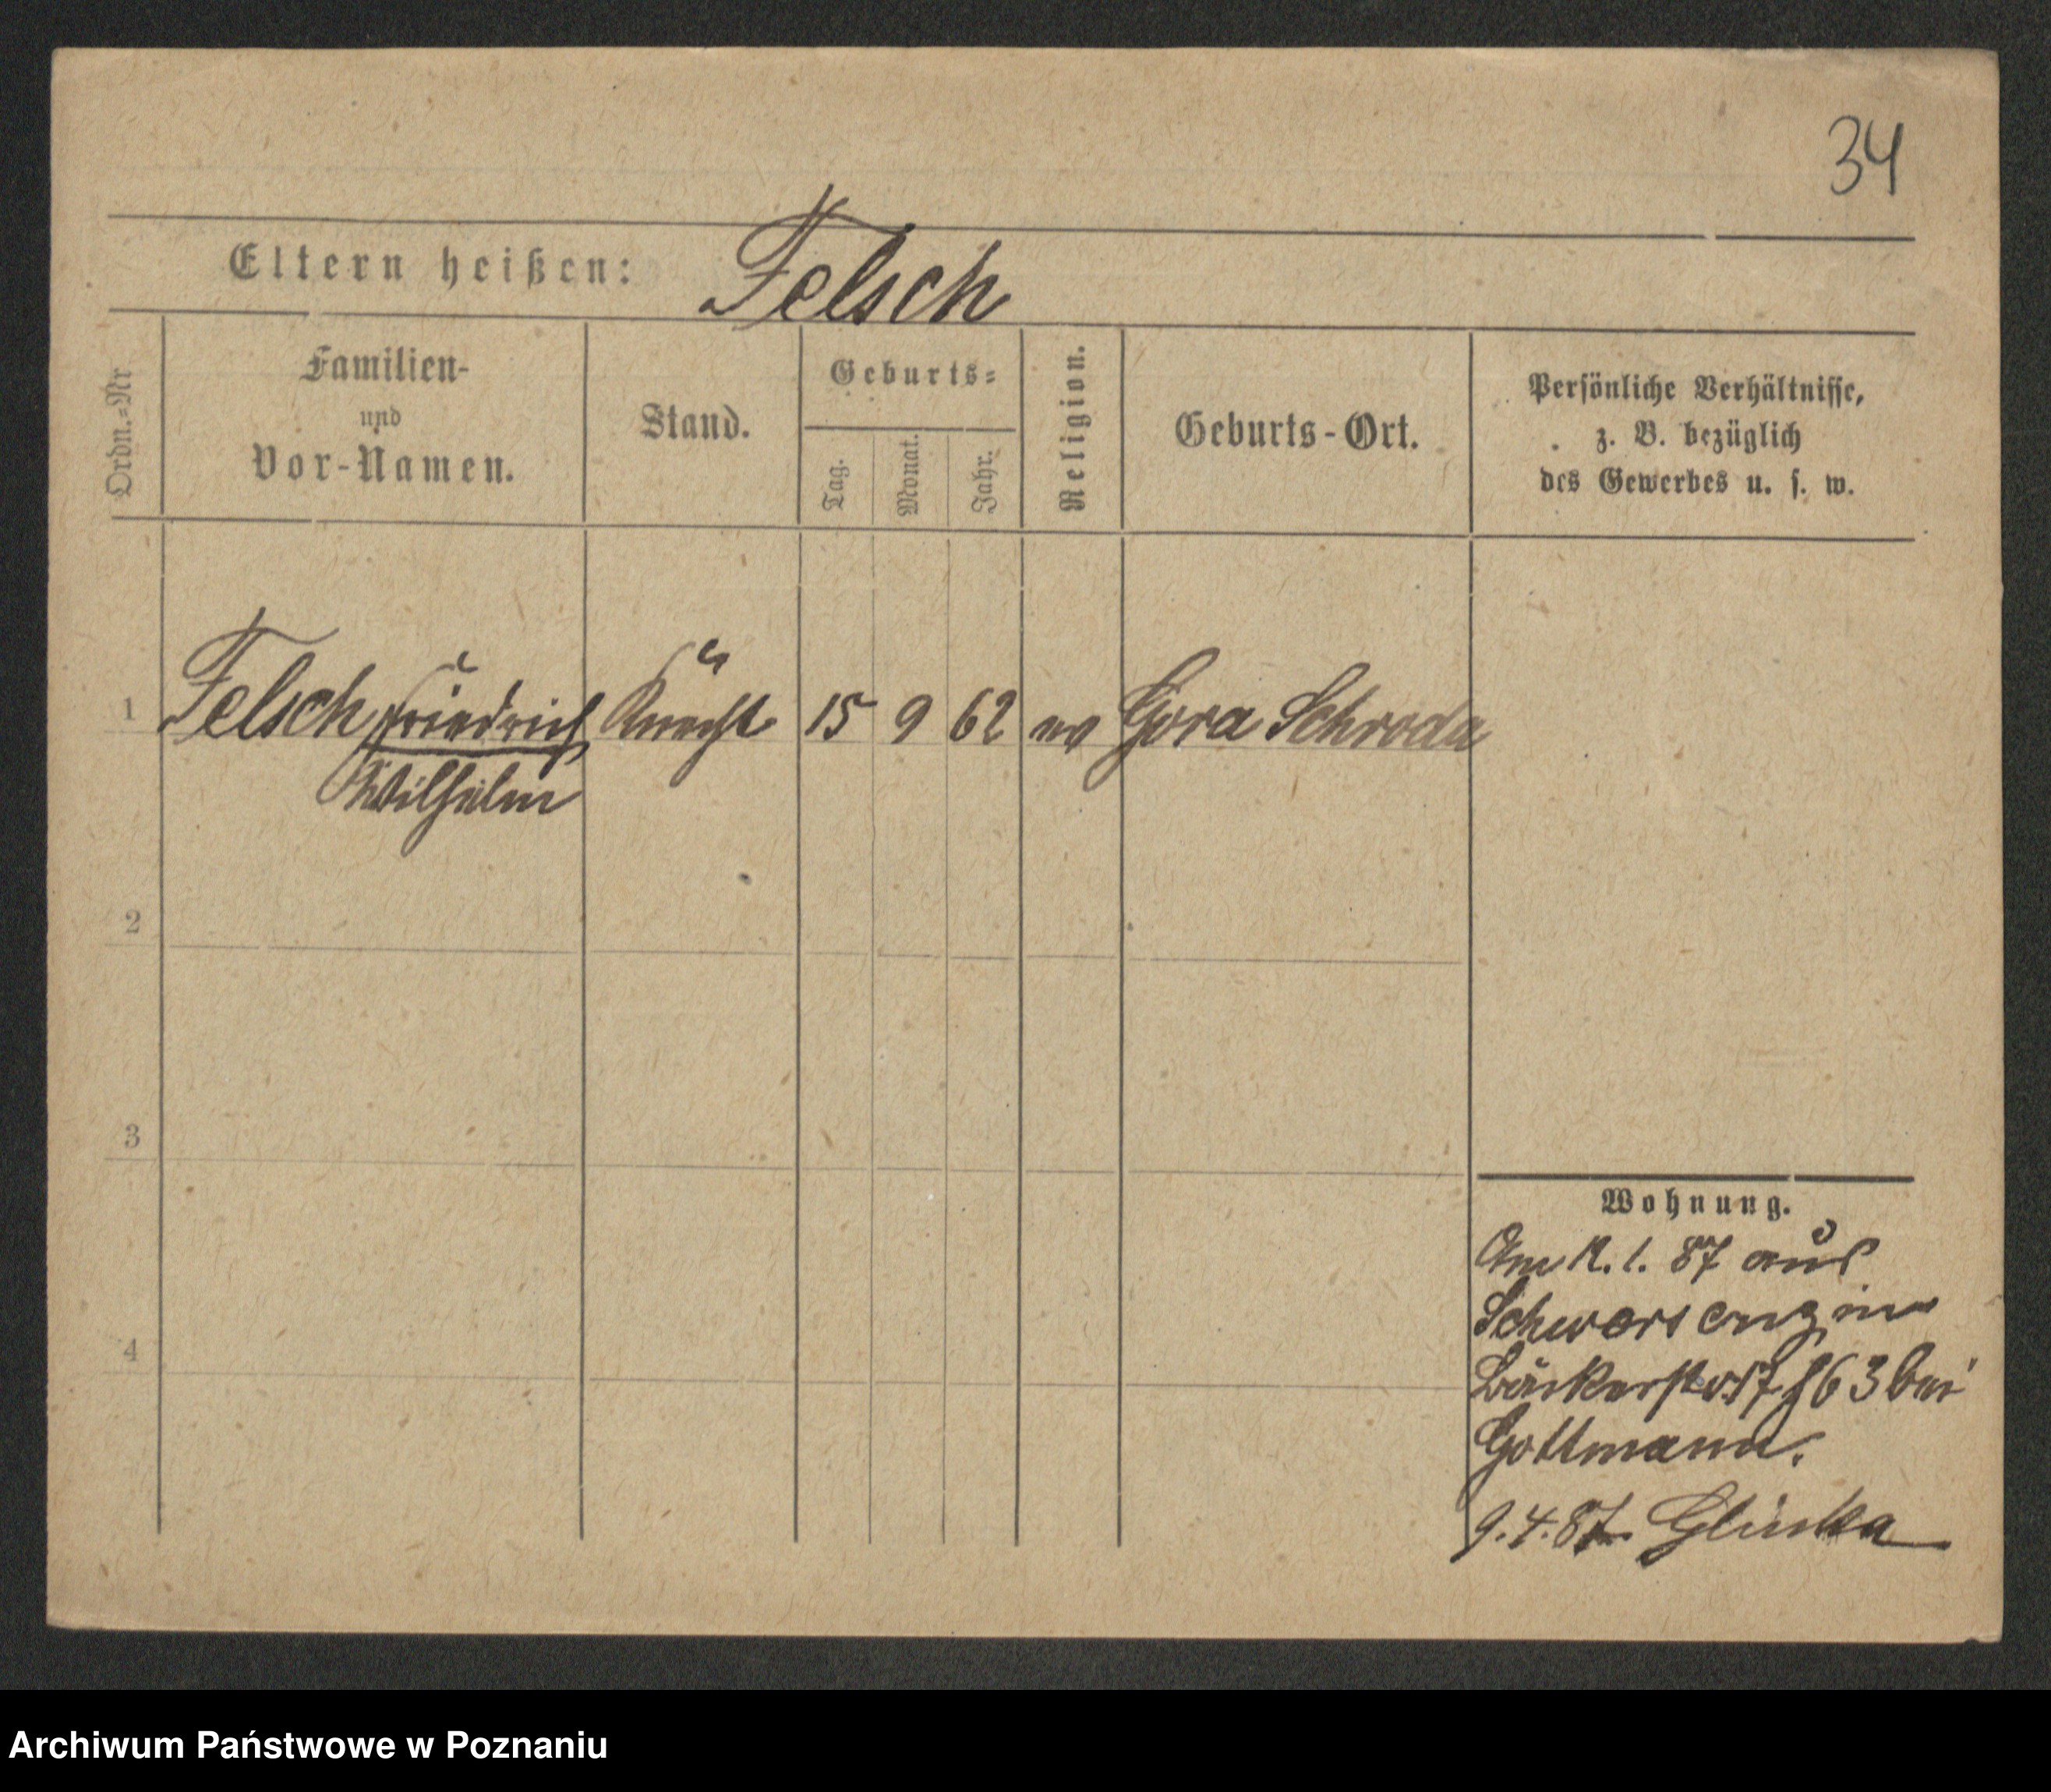 34
Eltern heißen: Felsch
Ordn.=Nr
Familien-
und
Vor-Namen.
Stand.
Geburts=
Tag.
Monat.
Jahr.
Religion.
Geburts-Ort.
Persönliche Verhältnisse,
z. B. bezüglich
des Gewerbes u. s. w.
1 Felsch Friedrich Knecht 15 9 62 ev Gora Schroda
Wilhelm
2
3
4
Wohnung.
Am 12. 1. 87 aus
Schwersenz in
Bäckerstr 17 bei
Gottmann.
9.4.87 Glinka
Archiwum Państwowe w Poznaniu